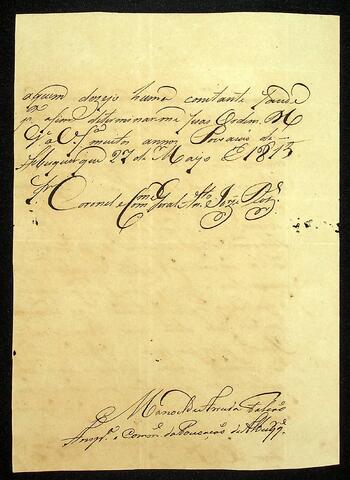 aquem dezejo huma constante saude
pª asim determinarme suas Ordẽs. D
Gᵉ a V. Sª muitos annos Povoacão de
Albuquerque 27 de Mayo de 1813
Sr. Coronel e Comᵉ Geral Antº Joze Roiz
Manoel de Arruda
e Comᵉ da Povoacão de Albuqᵉ